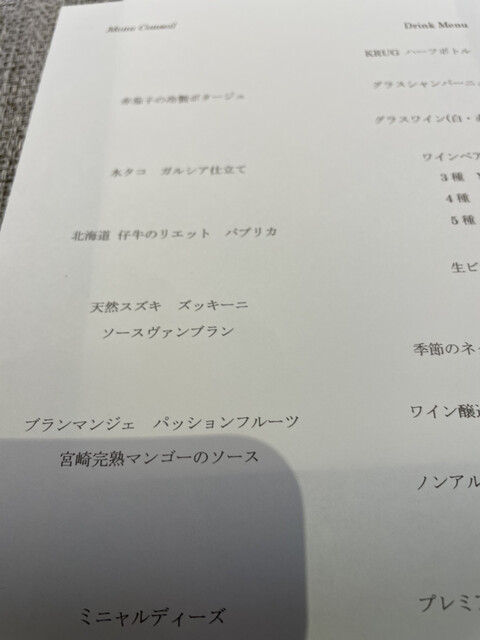 Menu Conseil
赤茄子の冷製ポタージュ
水タコ　ガルシア仕立て
北海道 仔牛のリエット　パプリカ
天然スズキ　ズッキーニ
ソースヴァンブラン
ブランマンジェ　パッションフルーツ
宮崎完熟マンゴーのソース
ミニャルディーズ
Drink Menu
KRUG ハーフボトル
グラスシャンパーニュ
グラスワイン(白・
ワインペア
3種
4種
5種
生ビ
季節のネ
ワイン醸造
ノンアル
プレミア